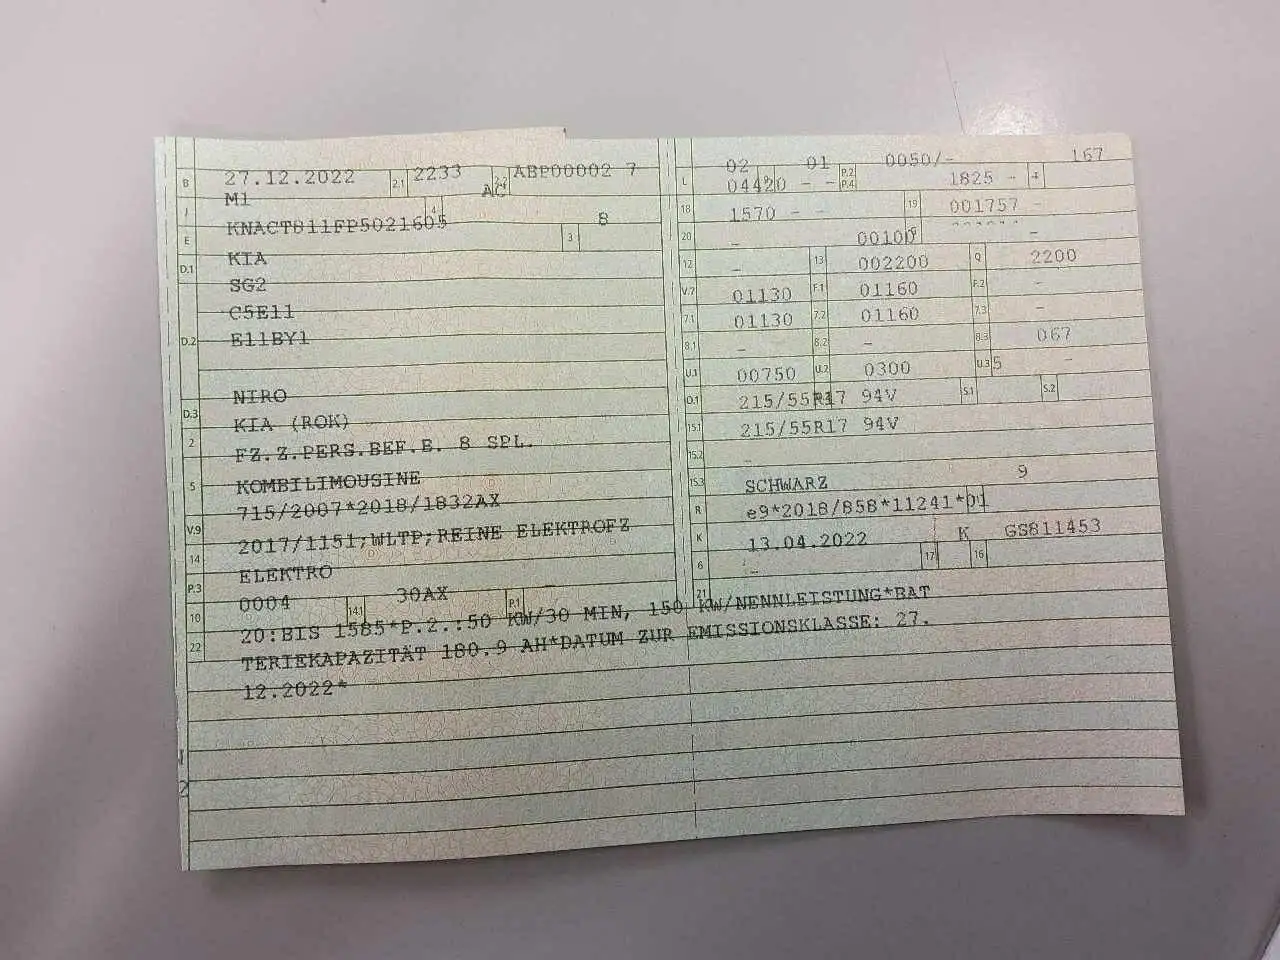 B 27.12.2022 2.1 2233 2.2 ABP00002 7
J M1 4 AC
E KNACT811FP5021605 3 8
D.1 KIA
SG2
D.2 C5E11
E11BY1
D.3 NIRO
2 KIA (ROK)
5 FZ.Z.PERS.BEF.B. 8 SPL.
KOMBILIMOUSINE
V.9 715/2007*2018/1832AX
14 2017/1151;WLTP;REINE ELEKTROFZ
P.3 ELEKTRO
10 0004 14.1 30AX P.1 -
22 20:BIS 1585*P.2.:50 KW/30 MIN, 150 KW/NENNLEISTUNG*BAT
TERIEKAPAZITÄT 180.9 AH*DATUM ZUR EMISSIONSKLASSE: 27.
12.2022*
L 02 01 P.2 P.4 0050/- 167
18 04420 - - 1825 -
1570 - - 19 001757 -
20 - 00100 -
12 - 13 002200 Q 2200
V.7 01130 F.1 01160 F.2 -
7.1 01130 7.2 01160 7.3 -
8.1 - 8.2 - 8.3 067
U.1 00750 U.2 0300 U.3 5 -
O.1 215/55R17 94V S.1 S.2
15.1 215/55R17 94V
15.2 -
15.3 SCHWARZ 9
R e9*2018/858*11241*01
K 13.04.2022 K GS811453
6 - 17 16
21